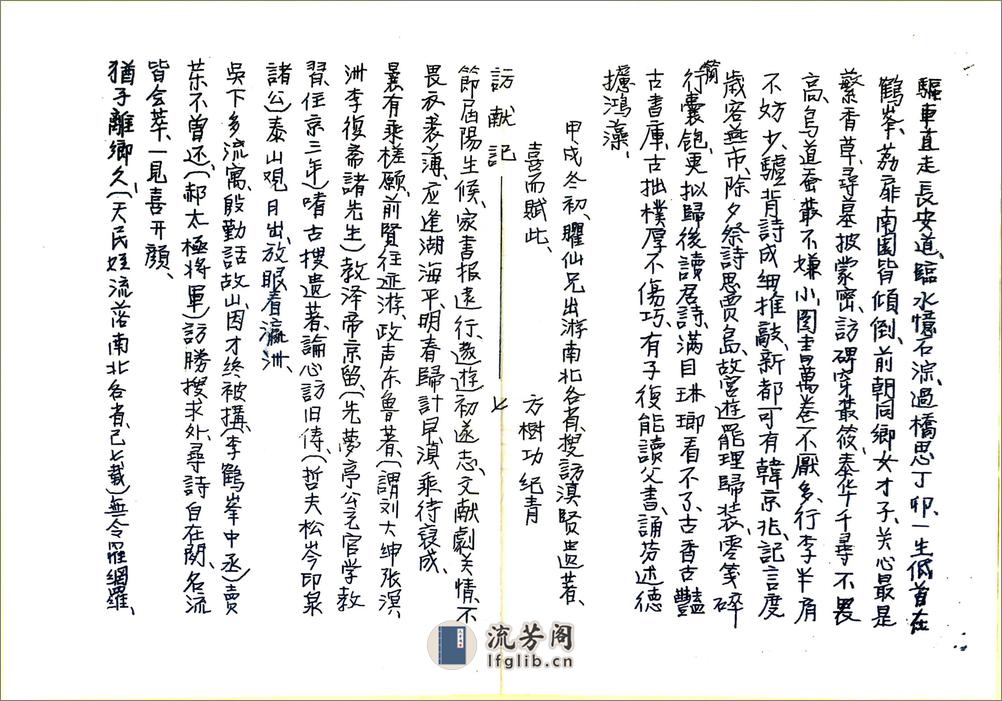 驅車直走長安道、臨水憶石淙、過橋思丁卯、一生低首在
鶴峯、荔扉南園皆傾倒、前朝同鄉女才子、关心最是
蘩香草、尋墓披蒙密、訪碑穿叢筱、泰华千尋不畏
高、鳥道蚕叢不嫌小、圖書萬卷不厭多、行李半肩
不妨少、驢背詩成細推敲、新都可有韓京兆、記言度
歲客燕市、除夕祭詩思賈島、故宮遊罷理歸装、零箋碎
簡行囊飽、更拟歸後讀君詩、滿目琳瑯看不了、古香古豔
古書庫、古拙樸厚不傷巧、有子復能讀父書、誦芬述德
攄鴻藻、
甲戍冬初、臞仙兄出游南北各省、搜訪滇賢遺著、
喜而賦此、
訪献記 方樹功纪青
節屆陽生候、家書报遠行、遨遊初遂志、文献劇关情、不
畏衣裘薄、应逢湖海平、明春歸計早、滇乘待裒成、
曩有乘槎願、前賢往迹游、政声东鲁著、(謂刘大绅张溟
洲李復斋諸先生)教泽帝京留、(先夢亭公充官学教
習、住京三年)嗜古搜遺著、論心訪旧俦、(哲夫松岑印泉
諸公)泰山观日出、放眼看瀛洲、
吳下多流寓、殷勤話故山、因才終被搆、(李鶴峯中丞)賣
茶不曾还、(郝太極將軍)訪勝搜求外、尋詩自在閑、名流
皆会萃、一見喜开顏、
猶子離鄉久、(天民姪流落南北各省、已七載)無令罹網羅、
流芳阁
lfglib.cn